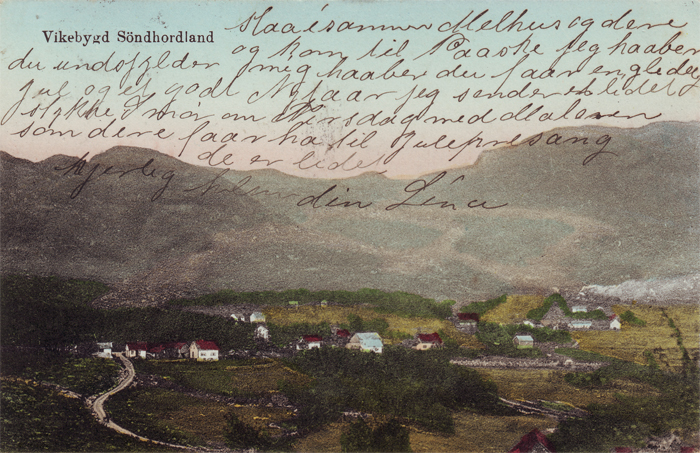 Vikebygd Söndhordland
Maa i sammen Melhus og dere
og kom til Paaske jeg haaber
du undskylder mig haaber du faar en glædelig
jul og et godt Nyaar jeg sender et lidet
stykke Smør om Torsdag med
som dere faar ha til julepresang
de er lidet
hjerlig hilsen din Lina